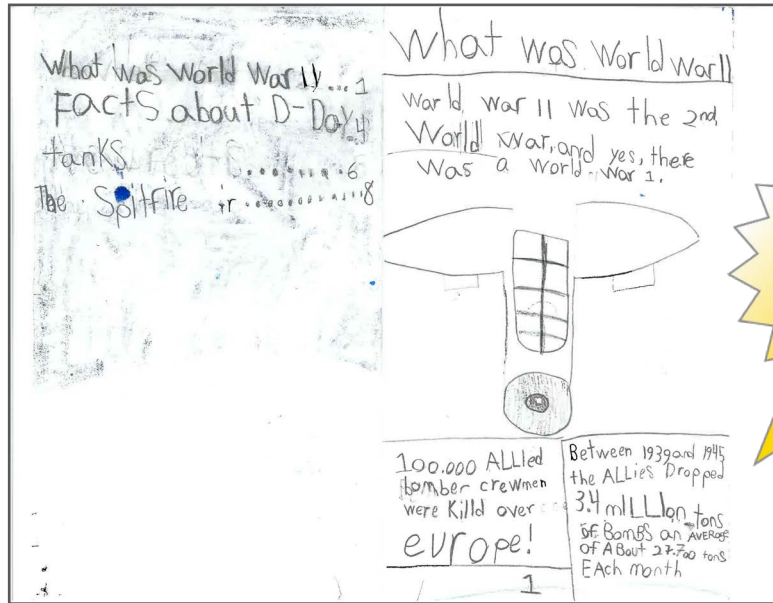 What was World War II ... 1
Facts about D-Day. 4
tanks ........ 6
The Spitfire ............ 8
What was World War II
World War II was the 2nd
World War, and yes, there
was a world war 1.
100.000 ALLied
bomber crewmen
were Killd over
europe!
Between 1939 and 1945
the ALLies Dropped
3.4 miLLIon tons
of BomBS an AVERAGE
OF ABout 27.700 tons
EAch month
1